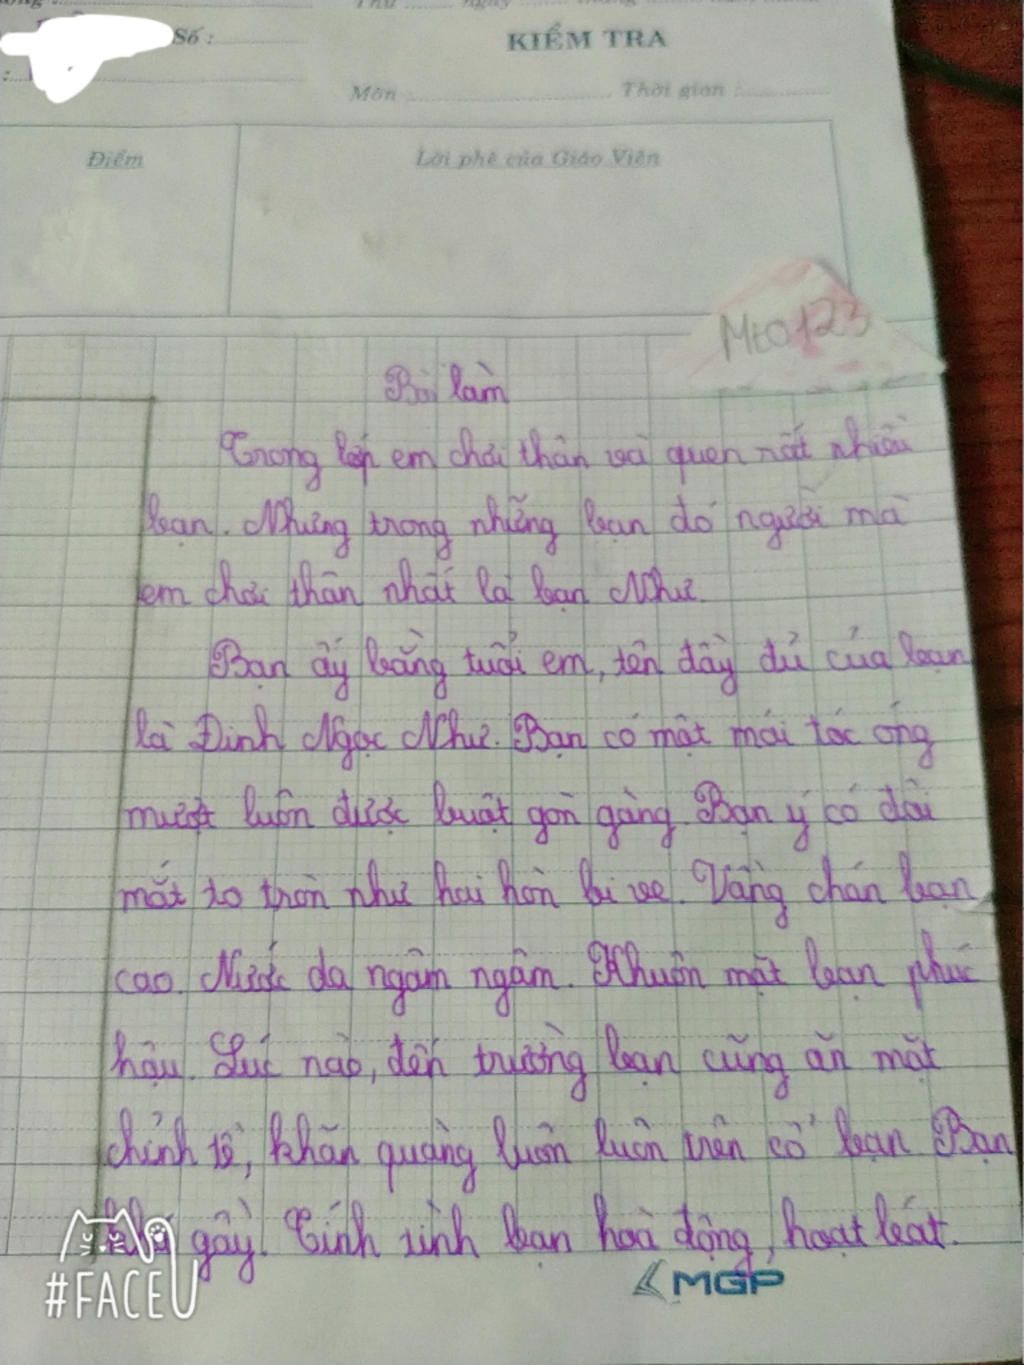 Số :
KIỂM TRA
Môn : Thời gian :
Điểm
Lời phê của Giáo Viên
Mt0123
Bài làm
Trong lớp em chơi thân và quen rất nhiều
bạn. Nhưng trong những bạn đó người mà
em chơi thân nhất là bạn Như.
Bạn ấy bằng tuổi em, tên đầy đủ của bạn
là Đinh Ngọc Như. Bạn có một mái tóc óng
mượt luôn được buột gọn gàng. Bạn ý có đôi
mắt to tròn như hai hòn bi ve. Vầng chán bạn
cao. Nước da ngâm ngâm. Khuôn mặt bạn phúc
hậu. Lúc nào, đến trường bạn cũng ăn mặt
chỉnh tề, khăn quàng luôn luôn trên cổ bạn Bạn
gầy. Tính tình bạn hoà động, hoạt bát.
#FACEU
MGP